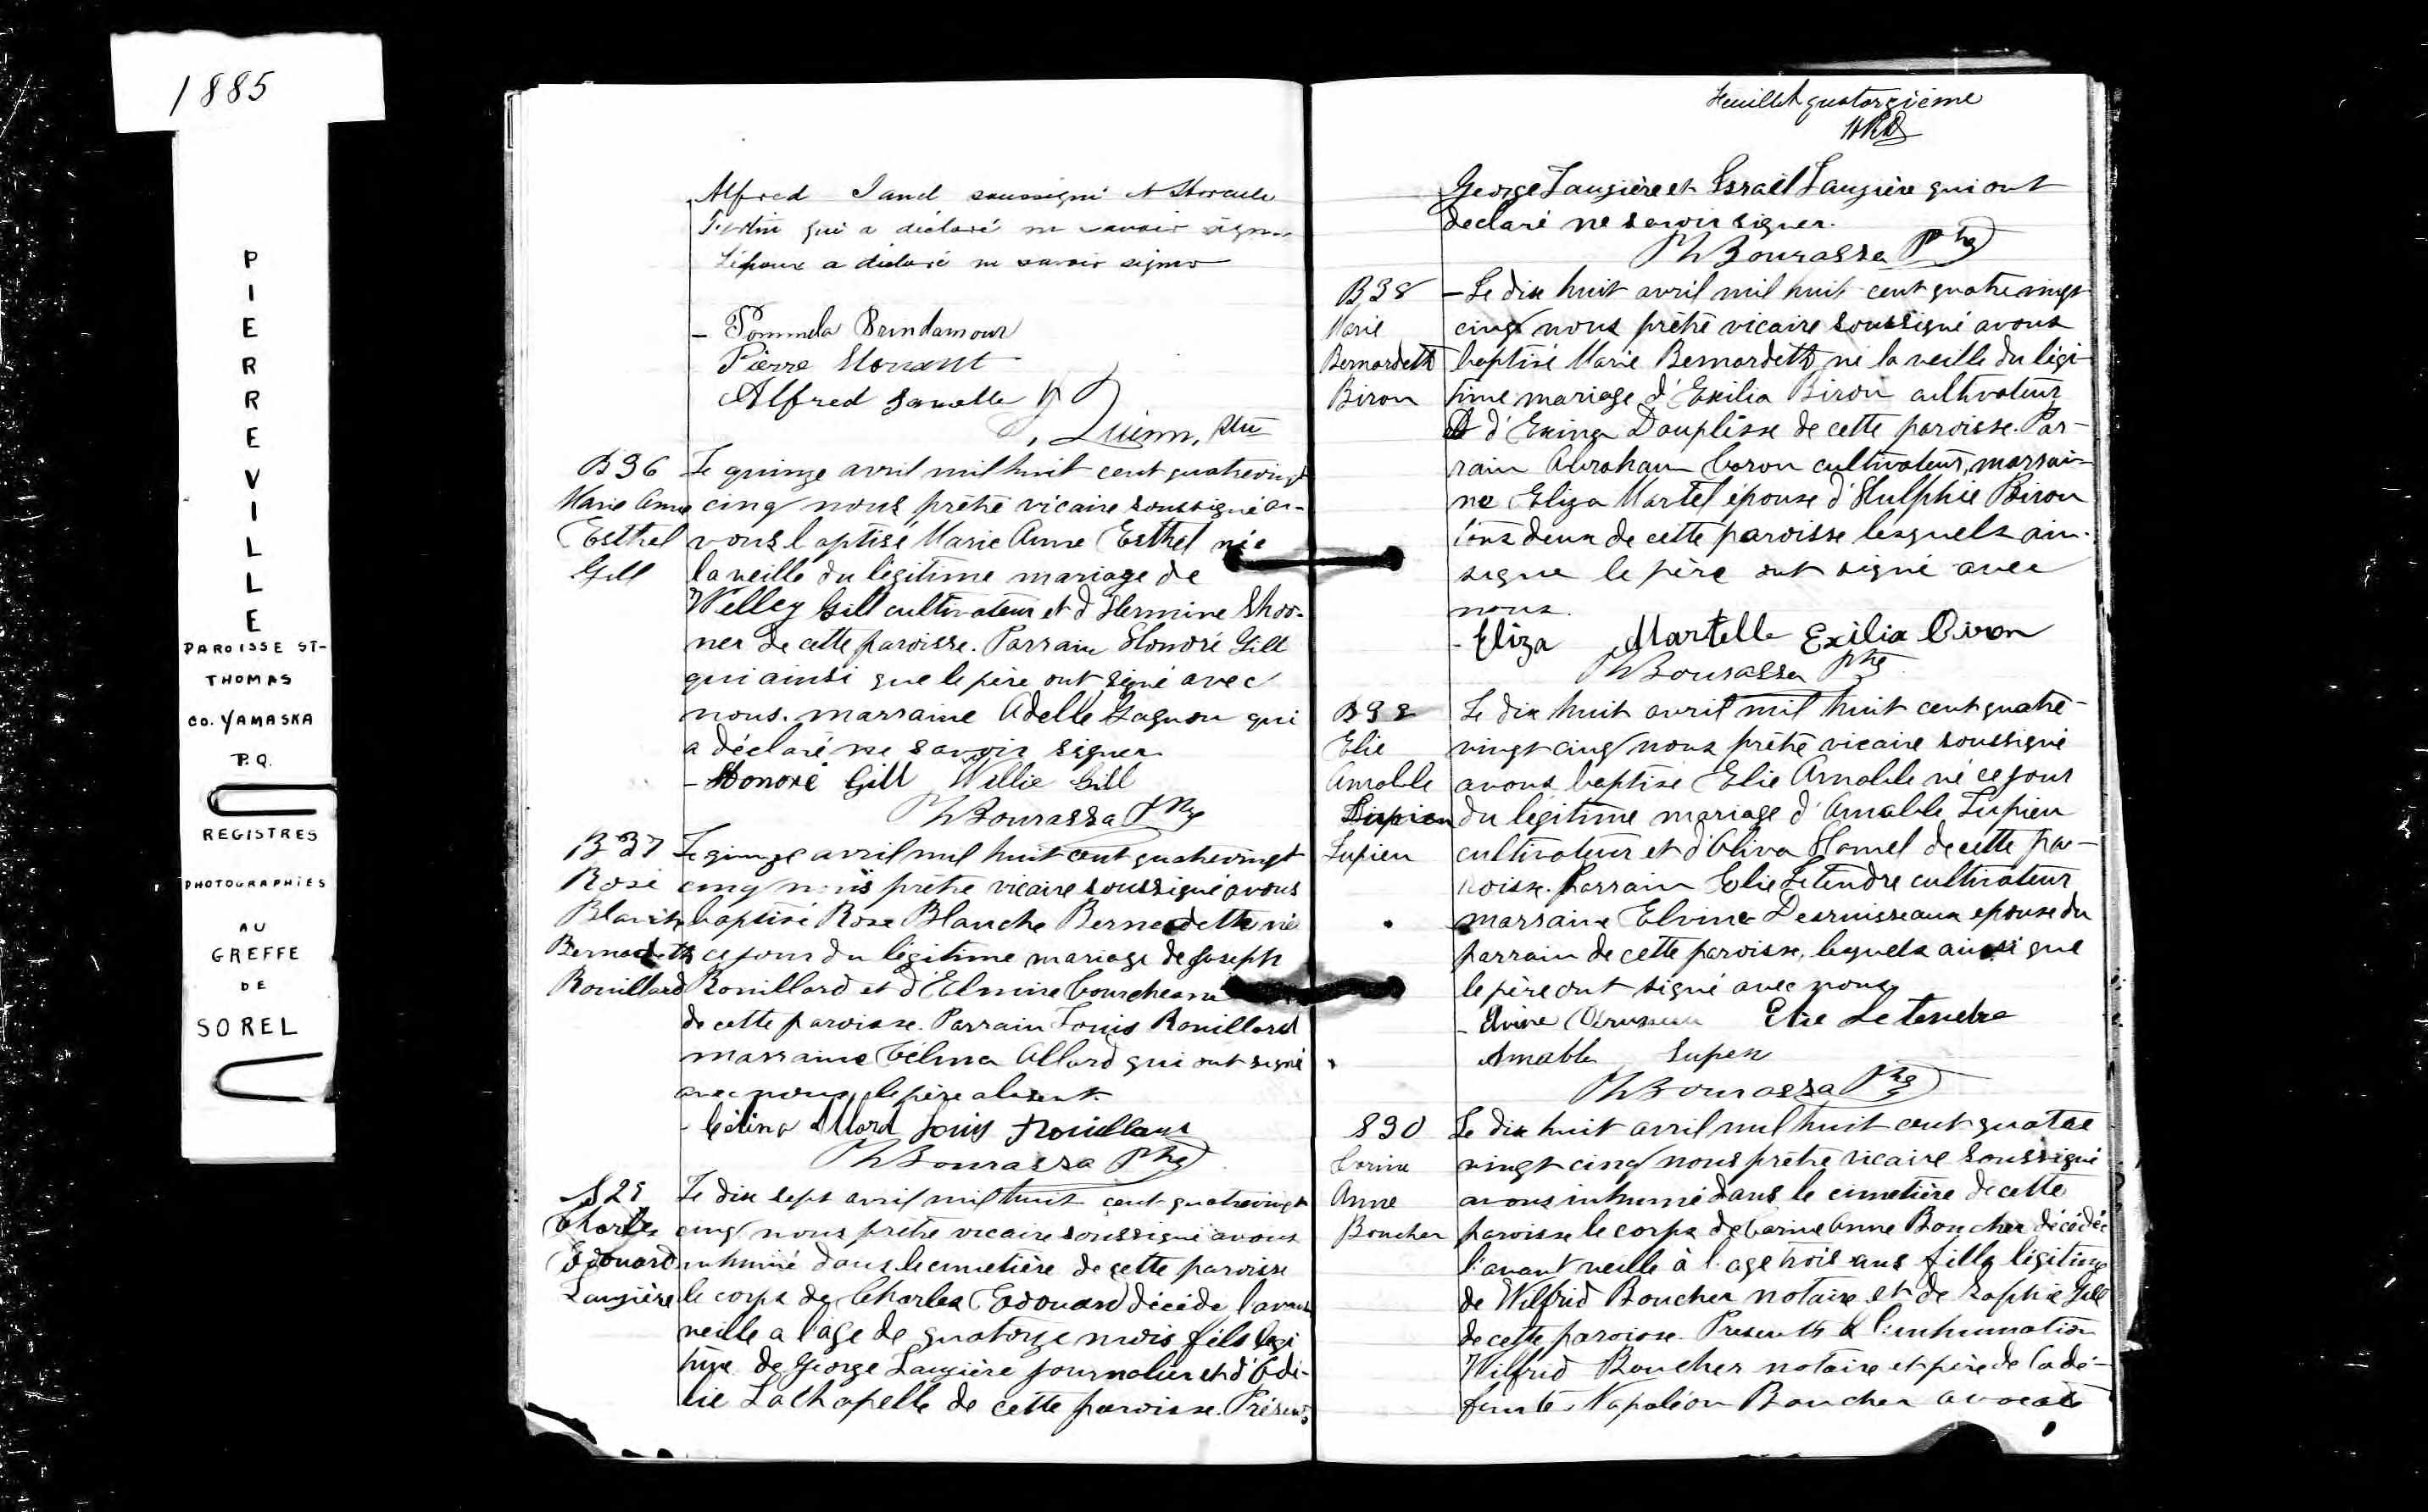 1885
PIERREVILLE
PAROISSE ST-
THOMAS
CO. YAMASKA
P.Q.
REGISTRES
PHOTOGRAPHIES
AU
GREFFE
DE
SOREL
Alfred soussigné et
qui a déclaré ne savoir signer
L'époux a déclaré ne savoir signer
- Pommela Brindamour
Pierre
Alfred
Quinn, Ptre
B36 Le quinze avril mil huit cent quatrevingt
Marie Anne cinq nous prêtre vicaire soussigné a-
Esthel vons baptisé Marie Anne Esthel née
Gill la veille du légitime mariage de
Willey Gill cultivateur et d'Hermine Shoo-
ner de cette paroisse. Parrain Honoré Gill
qui ainsi que le père ont signé avec
nous. marraine Adelle Gagnon qui
a déclaré ne savoir signer.
- Honoré Gill Willie Gill
Ph Bourassa Ptre
B37 Le quinze avril mil huit cent quatrevingt
Rose cinq nous prêtre vicaire soussigné avons
Blanche baptisé Rose Blanche Bernadette née
Bernadette ce jour du légitime mariage de Joseph
Rouillard Rouillard et d'Elmire Courchesne
de cette paroisse. Parrain Louis Rouillard
marraine Célina Allard qui ont signé
avec nous, le père absent.
- Célina Allard Louis Rouillard
Ph Bourassa Ptre
S29 Le dix sept avril mil huit cent quatrevingt
Charles cinq nous prêtre vicaire soussigné avons
Edouard inhumé dans le cimetière de cette paroisse
Laugière le corps de Charles Edouard décédé l'avant
veille a l'âge de quatorze mois fils légi
time de George Laugière journalier et d'Odi-
lie Lachapelle de cette paroisse. Présents
Feuillet quatorzième
George Laugière et Israël Laugière qui ont
declaré ne savoir signer.
Ph Bourassa Ptre
B38 - Le dix huit avril mil huit cent quatrevingt
Marie cinq nous prêtre vicaire soussigné avons
Bernardette baptisé Marie Bernardette né la veille du légi-
Biron time mariage d'Exilia Biron cultivateur
et d'Exina Douplisse de cette paroisse. Par-
rain Abraham Caron cultivateur, marrai-
ne Eliza Martel épouse d'Hulphie Biron
tous deux de cette paroisse lesquels ain-
sique le père ont signé avec
nous.
- Eliza Martelle Exilia Biron
Ph Bourassa Ptre
B39 Le dix huit avril mil huit cent quatre-
Elie vingt cinq nous prêtre vicaire soussigné
Amable avons baptisé Elie Amable né ce jour
Lupien du légitime mariage d'Amable Lupien
Lupien cultivateur et d'Oliva Hamel de cette pa-
roisse. Parrain Elie Letendre cultivateur
marraine Elvina Desruisseaux epouse du
parrain de cette paroisse, lesquels ainsi que
le père ont signé avec nous
- Elie Letendre
Amable Lupen
Ph Bourassa Ptre
S30 Le dix huit avril mil huit cent quatre
Corine vingt cinq nous prêtre vicaire soussigné
Anne avons inhumé dans le cimetière de cette
Boucher paroisse le corps de Corine Anne Boucher décédée
l'avant veille à l'age trois ans fille légitime
de Wilfrid Boucher notaire et de Sophie Gill
de cette paroisse. Présents à l'inhumation
Wilfrid Boucher notaire et père de la dé-
funte, Napoléon Boucher avocat